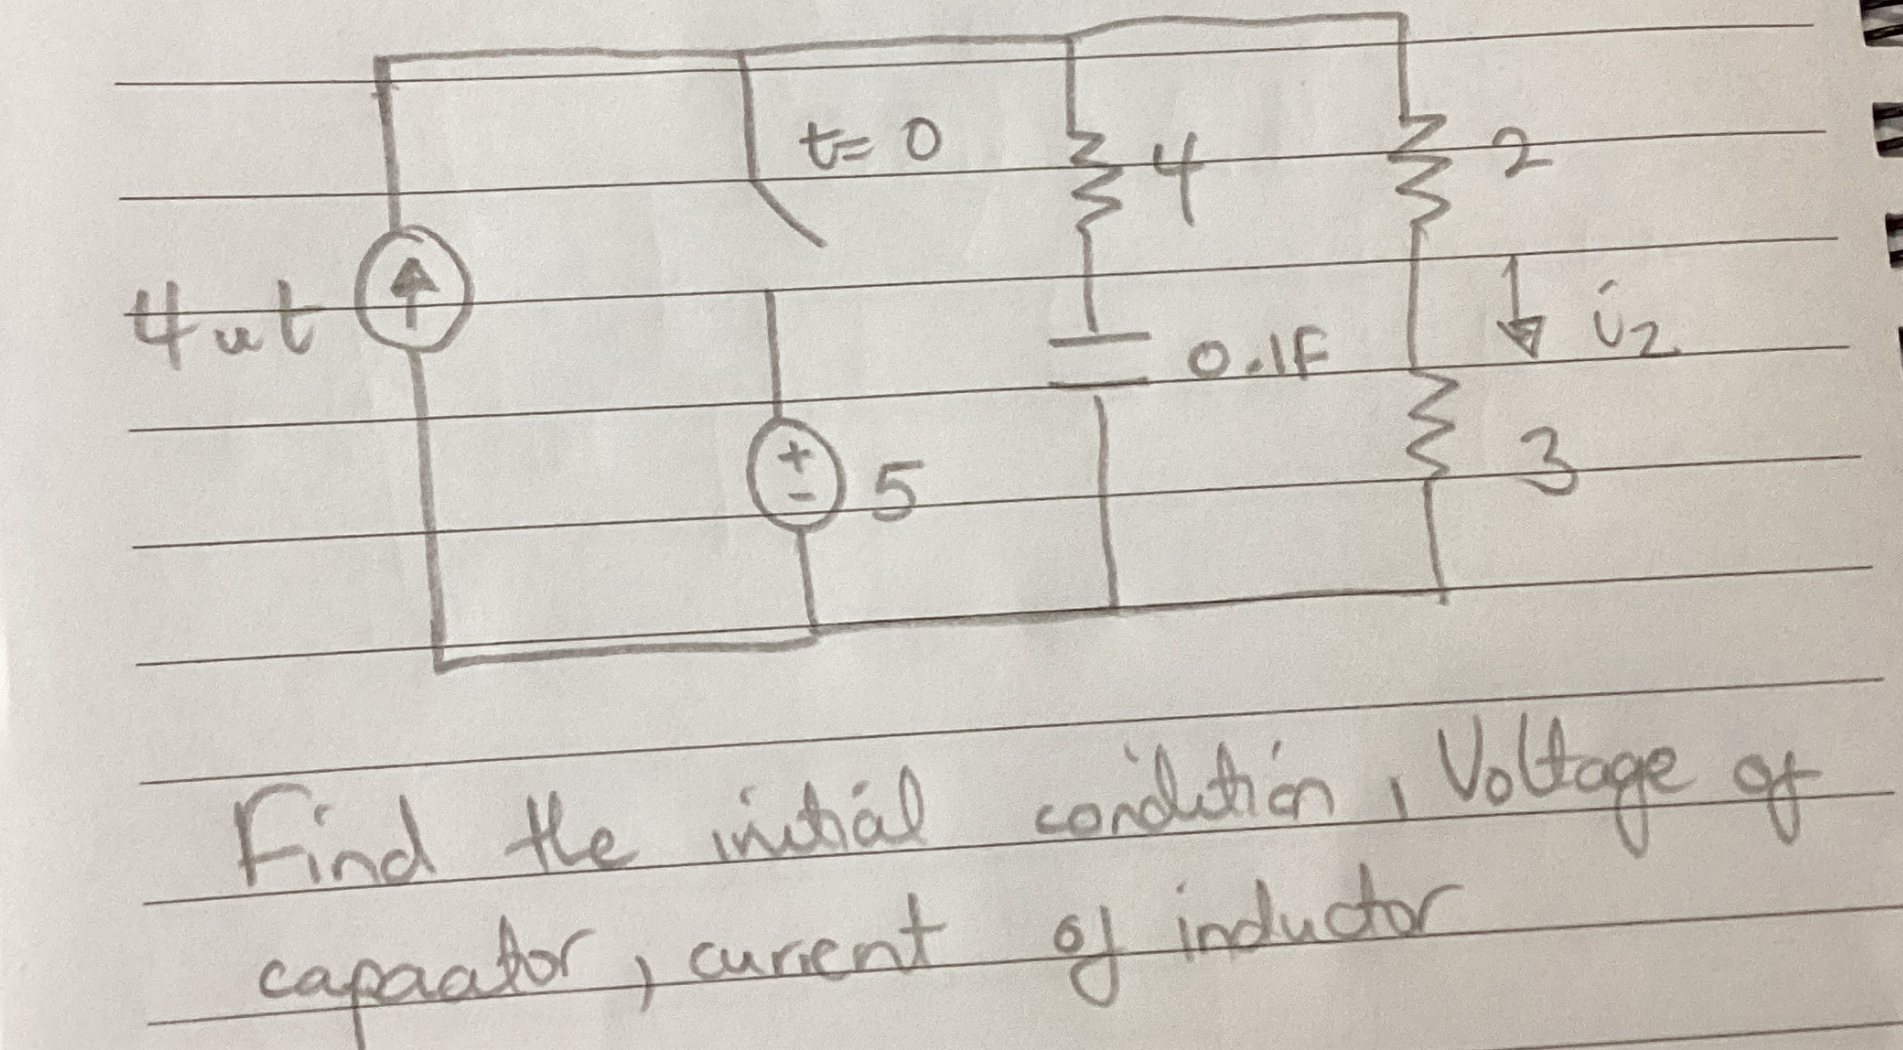 t= 0
4
2
4ut
0.1F
i2
+
-
5
3
Find the initial condition, Voltage of
capacator, current of inductor